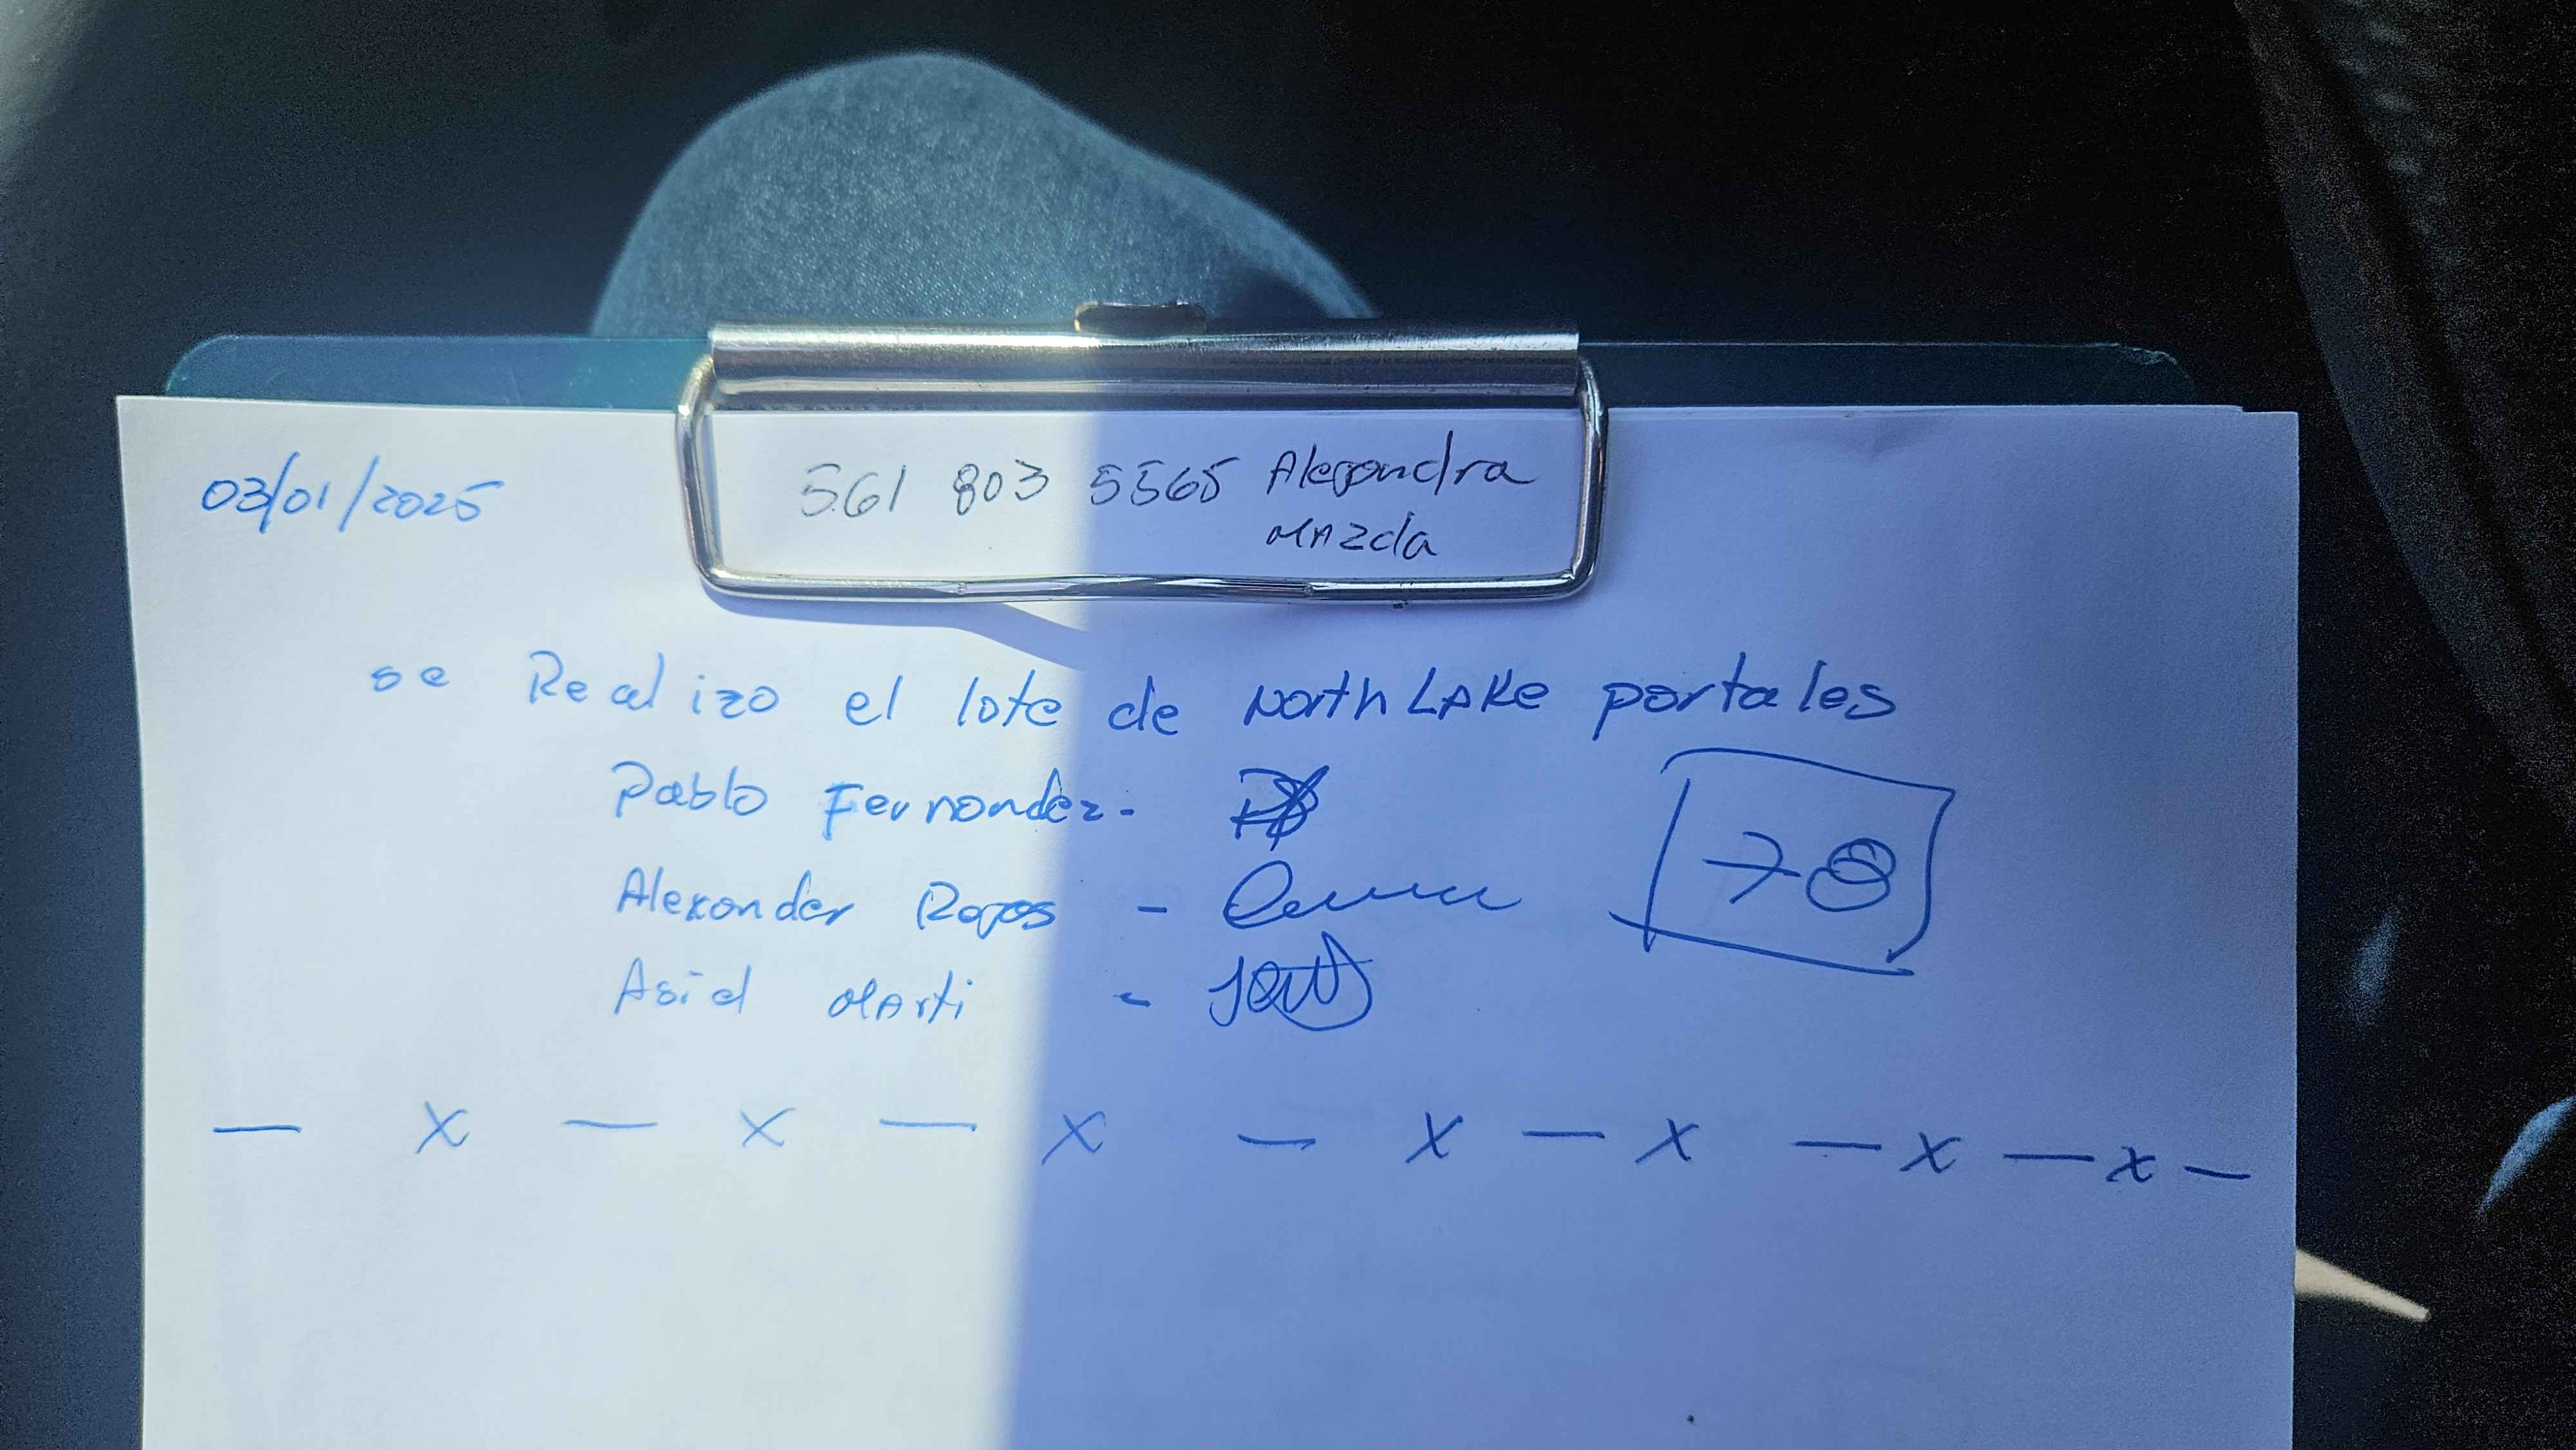 03/01/2025
561 803 5565 Alejandra
Mazda
se Realizo el lote de North Lake portales
Pablo Fernandez -
Alexander Rojas -
Asiel Marti -
78
— x — x — x — x — x — x — x —